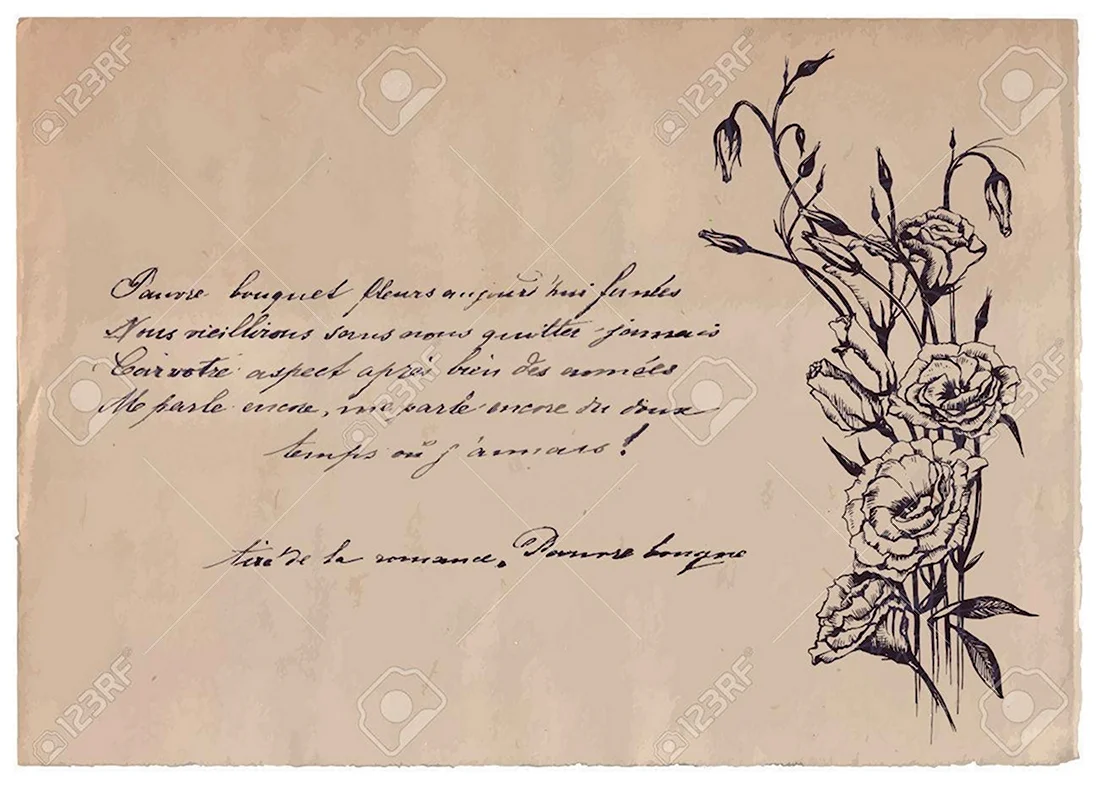 Pauvre bouquet fleurs aujourd'hui fanées
Nous vieillirons sans nous quitter jamais
Car votre aspect après bien des années
Me parle encore, me parle encore du doux
temps où j'aimais!
tiré de la romance. Pauvre bouque
123RF